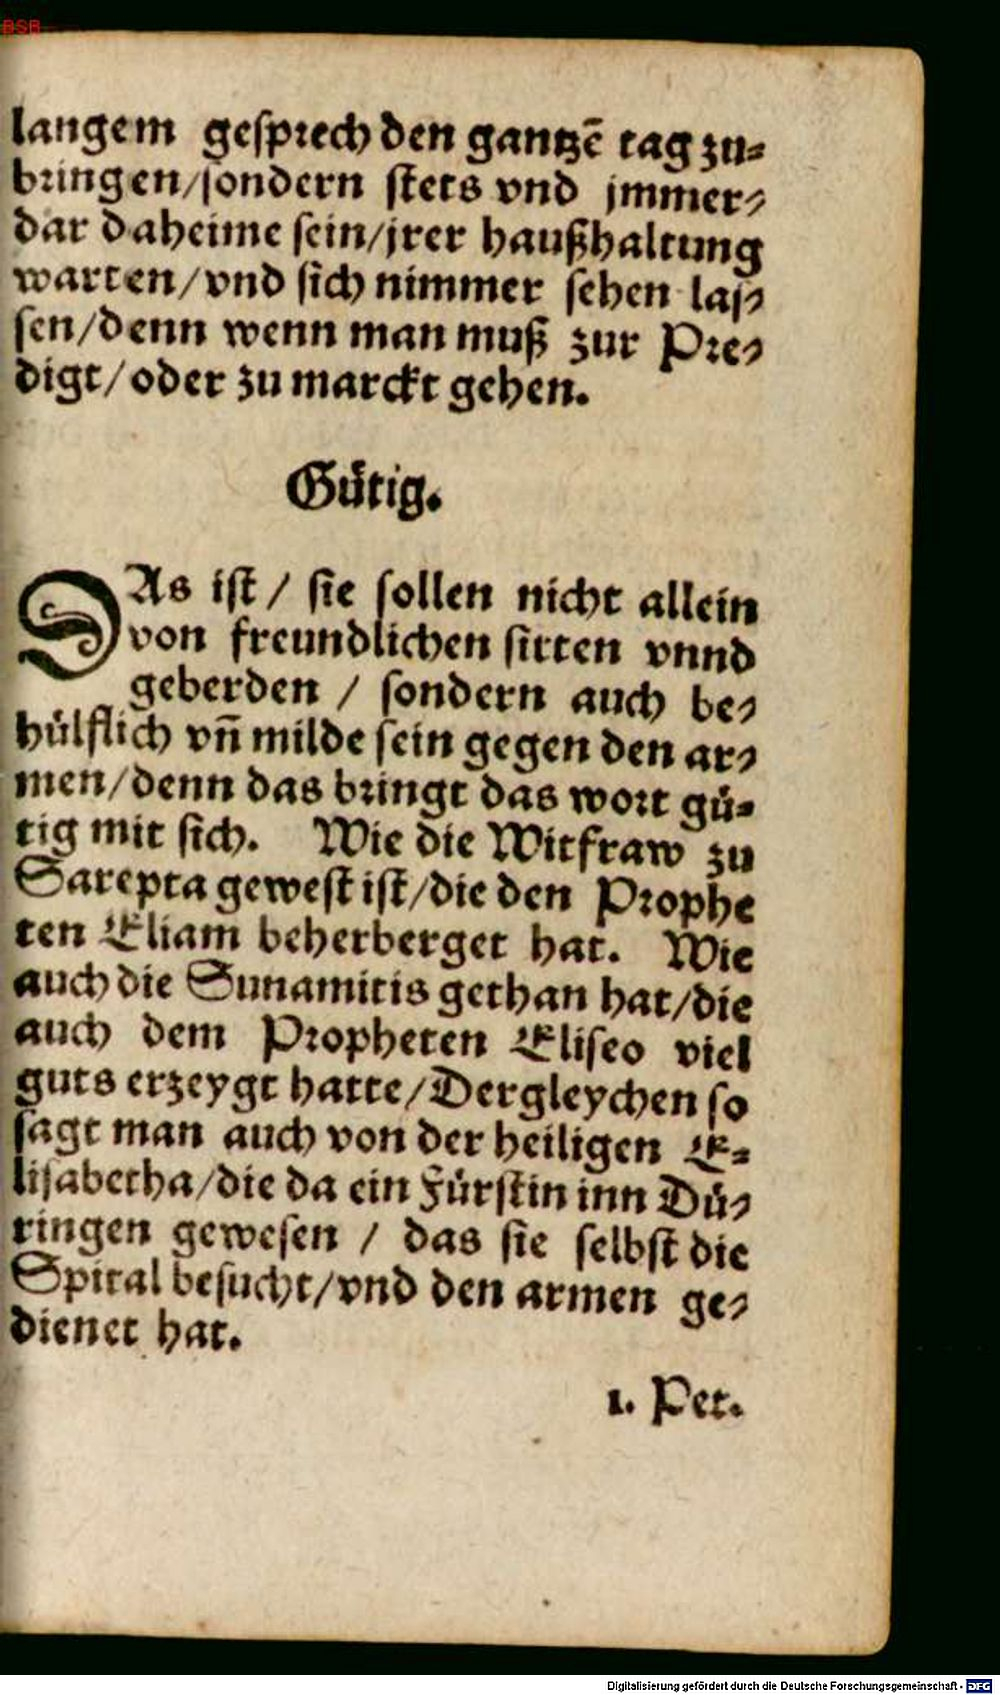 BSB
langem gesprech den gantzē tag zu-
bringen/sondern stets vnd jmmer-
dar daheime sein/jrer haußhaltung
warten/vnd sich nimmer sehen las-
sen/denn wenn man muß zur Pre-
digt/oder zu marckt gehen.
Gütig.
DAs ist / sie sollen nicht allein
von freundlichen sitten vnnd
geberden / sondern auch be-
hülflich vñ milde sein gegen den ar-
men/denn das bringt das wort gü-
tig mit sich. Wie die Witfraw zu
Sarepta gewest ist/die den Prophe
ten Eliam beherberget hat. Wie
auch die Sunamitis gethan hat/die
auch dem Propheten Eliseo viel
guts erzeygt hatte/Dergleychen so
sagt man auch von der heiligen E-
lisabetha/die da ein Fürstin inn Dü-
ringen gewesen / das sie selbst die
Spital besucht/vnd den armen ge-
dienet hat.
1. Pet.
Digitalisierung gefördert durch die Deutsche Forschungsgemeinschaft - DFG